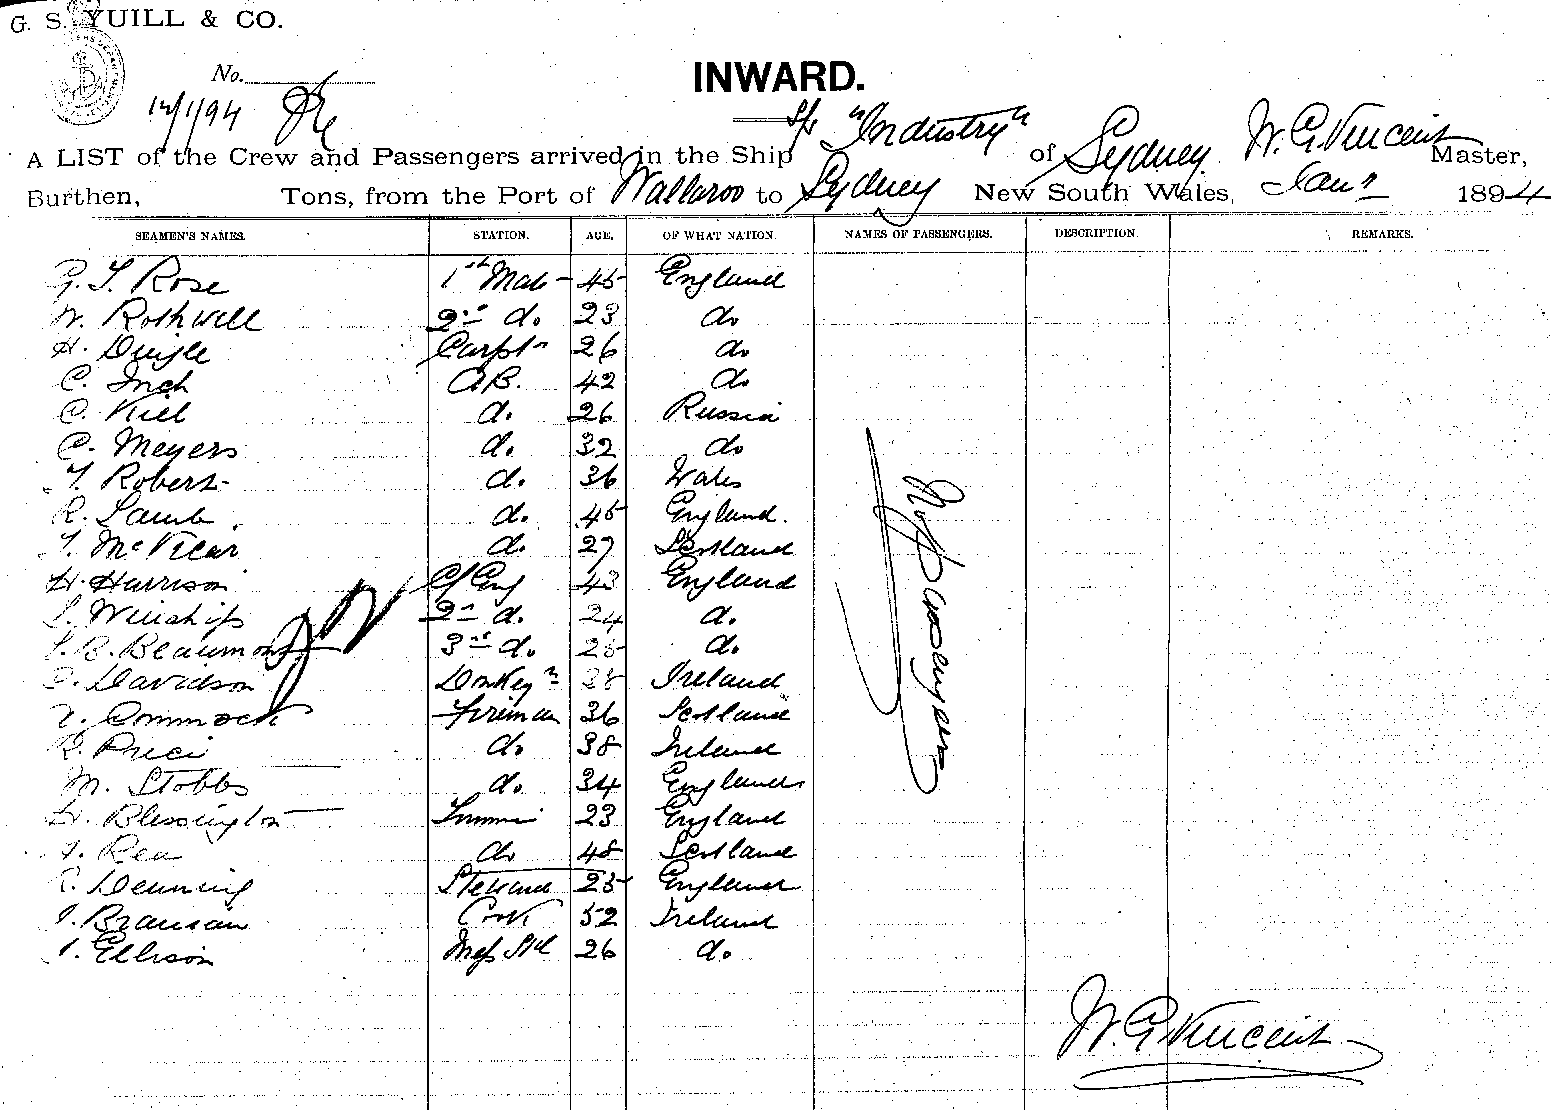 G. S. YUILL & CO.
No.
12/1/94
INWARD.
A LIST of the Crew and Passengers arrived in the Ship S/s "Industry" of Sydney. W. G. Vincent Master,
Burthen, Tons, from the Port of Wallaroo to Sydney New South Wales, Jany 1894
SEAMEN'S NAMES. STATION. AGE. OF WHAT NATION. NAMES OF PASSENGERS. DESCRIPTION. REMARKS.
G. T. Rose 1st Mate 45 England
W. Rothwell 2nd do. 23 do
H. Carptr 26 do
C. Inch AB. 42 do
C. Kiel d. 26 Russia
C. Meyers d. 32 do
T. Roberts d. 36 Wales
R. Lamb d. 45 England.
T. McVicar d. 27 Scotland
H. Harrison Cf Eng 43 England
Winship 2nd d. 24 d.
B. Beaumont 3rd d. 25 d.
Davidson Donkeyn 28 Ireland
Fireman 36 Scotland
R. Price do 38 Ireland
M. Stobbs do. 34 England
H. Blessington 23 England
Rea do 48 Scotland
R. Denning Steward 25 England
Cook 52 Ireland
Ellison Mess Std 26 do.
No passengers
W. G. Vincent